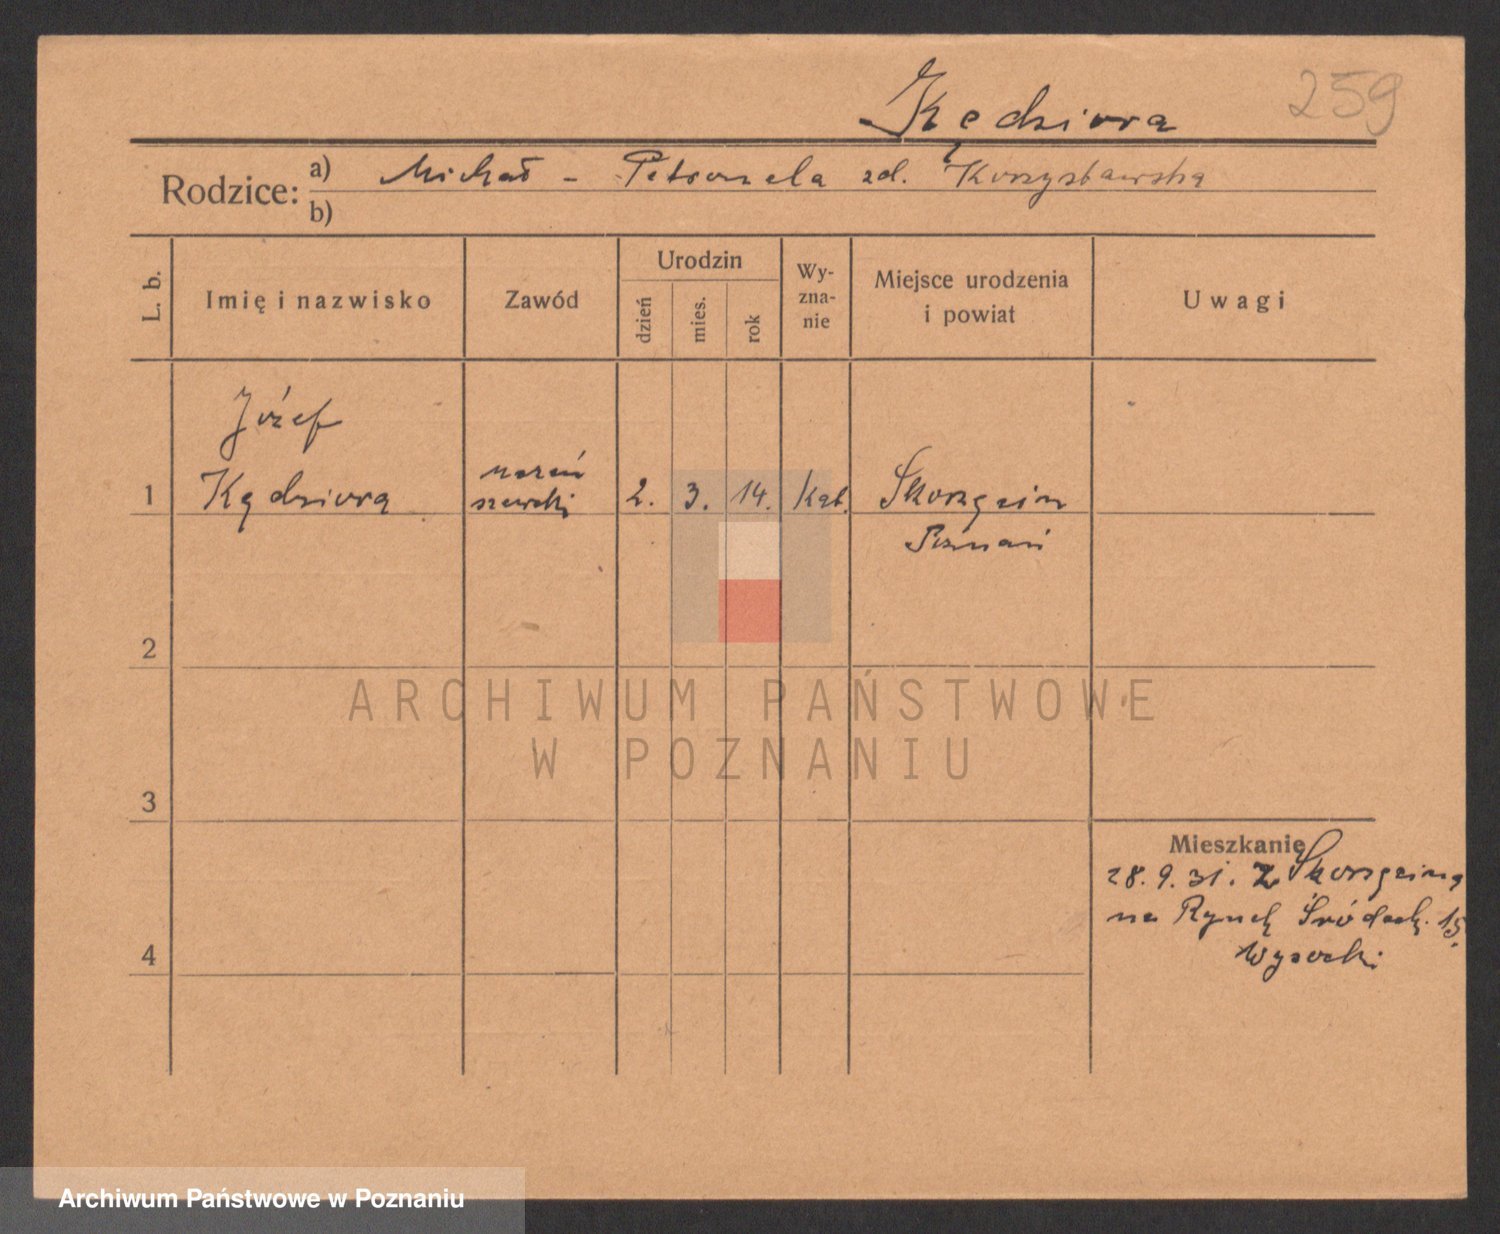 259
Kędziora
Rodzice: a) Michał - Petronela zd.
b)
L. b.
Imię i nazwisko
Zawód
Urodzin
dzień
mies.
rok
Wy-
zna-
nie
Miejsce urodzenia
i powiat
Uwagi
Józef
1 Kędziora
uczeń
szewski
2. 3. 14. kat.
Poznań
2
3
4
ARCHIWUM PAŃSTWOWE
W POZNANIU
Mieszkanie
28.9.31. z
na Rynek Śródeck. 15.
Wysocki
Archiwum Państwowe w Poznaniu